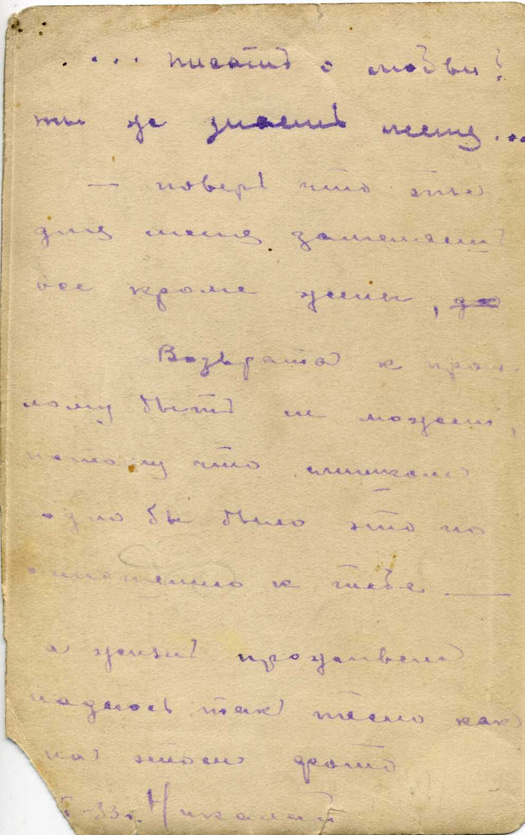 ... писать о любви?
ты не знаешь меня...
— поверь что ты
для меня заменяешь
все кроме жены,
Возврата к прош-
лому быть не может,
потому что слишком
было бы это по
отношению к тебе —
а жизнь проживем
надеюсь так тесно как
на этом фото
-33г. Николай